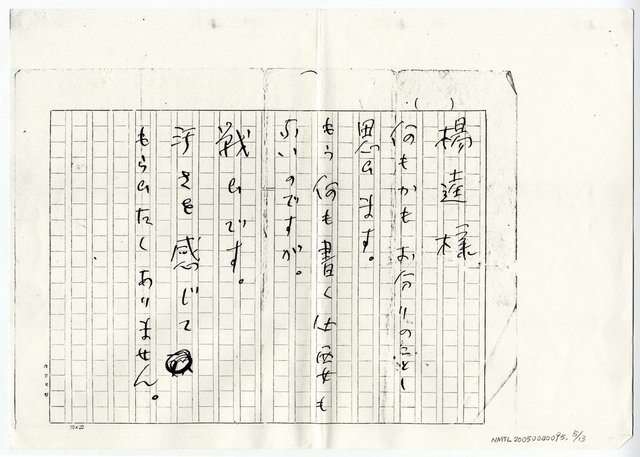 楊逵様
何もかもお分りのことゝ
思ひます。
もう何も書く必要も
ないのですが。
戦ひです。
汚さを感じて
もらひたくありません。
10×20
NMTL20050040095. 5/13